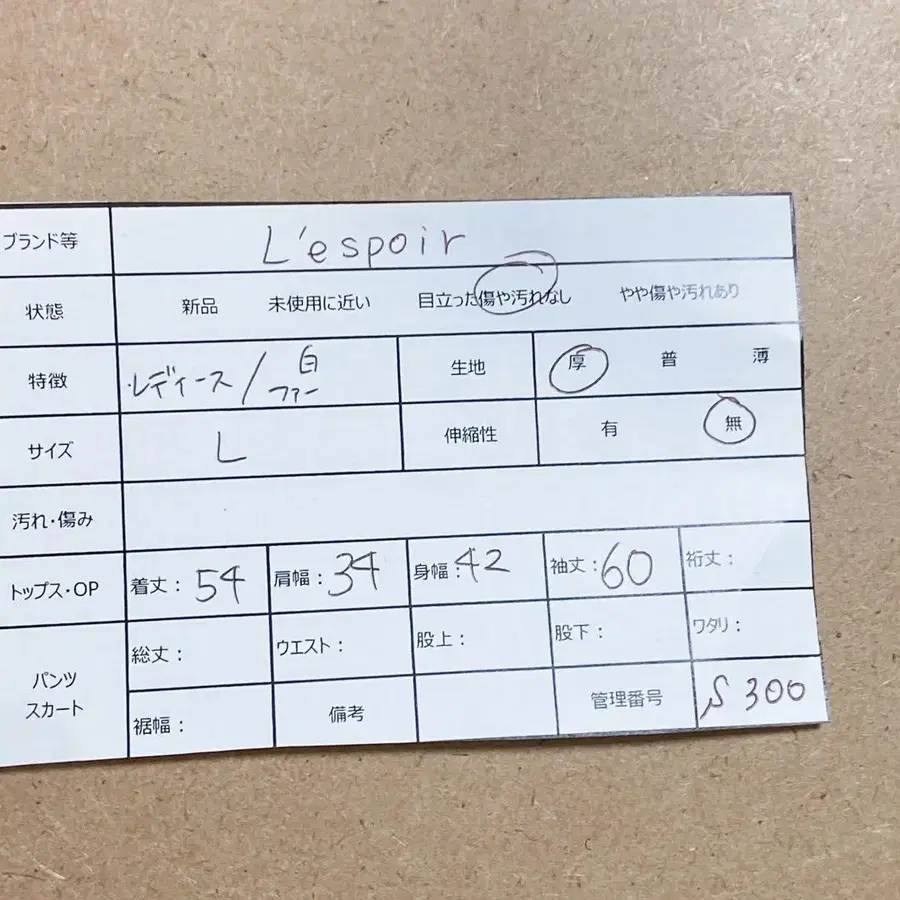 ブランド等 L'espoir
状態 新品 未使用に近い 目立った傷や汚れなし やや傷や汚れあり
特徴 レディース/白 ファー 生地 厚 普 薄
サイズ L 伸縮性 有 無
汚れ・傷み
トップス・OP 着丈:54 肩幅:34 身幅:42 袖丈:60 裄丈:
パンツ スカート 総丈: ウエスト: 股上: 股下: ワタリ:
裾幅: 備考 管理番号 S 300